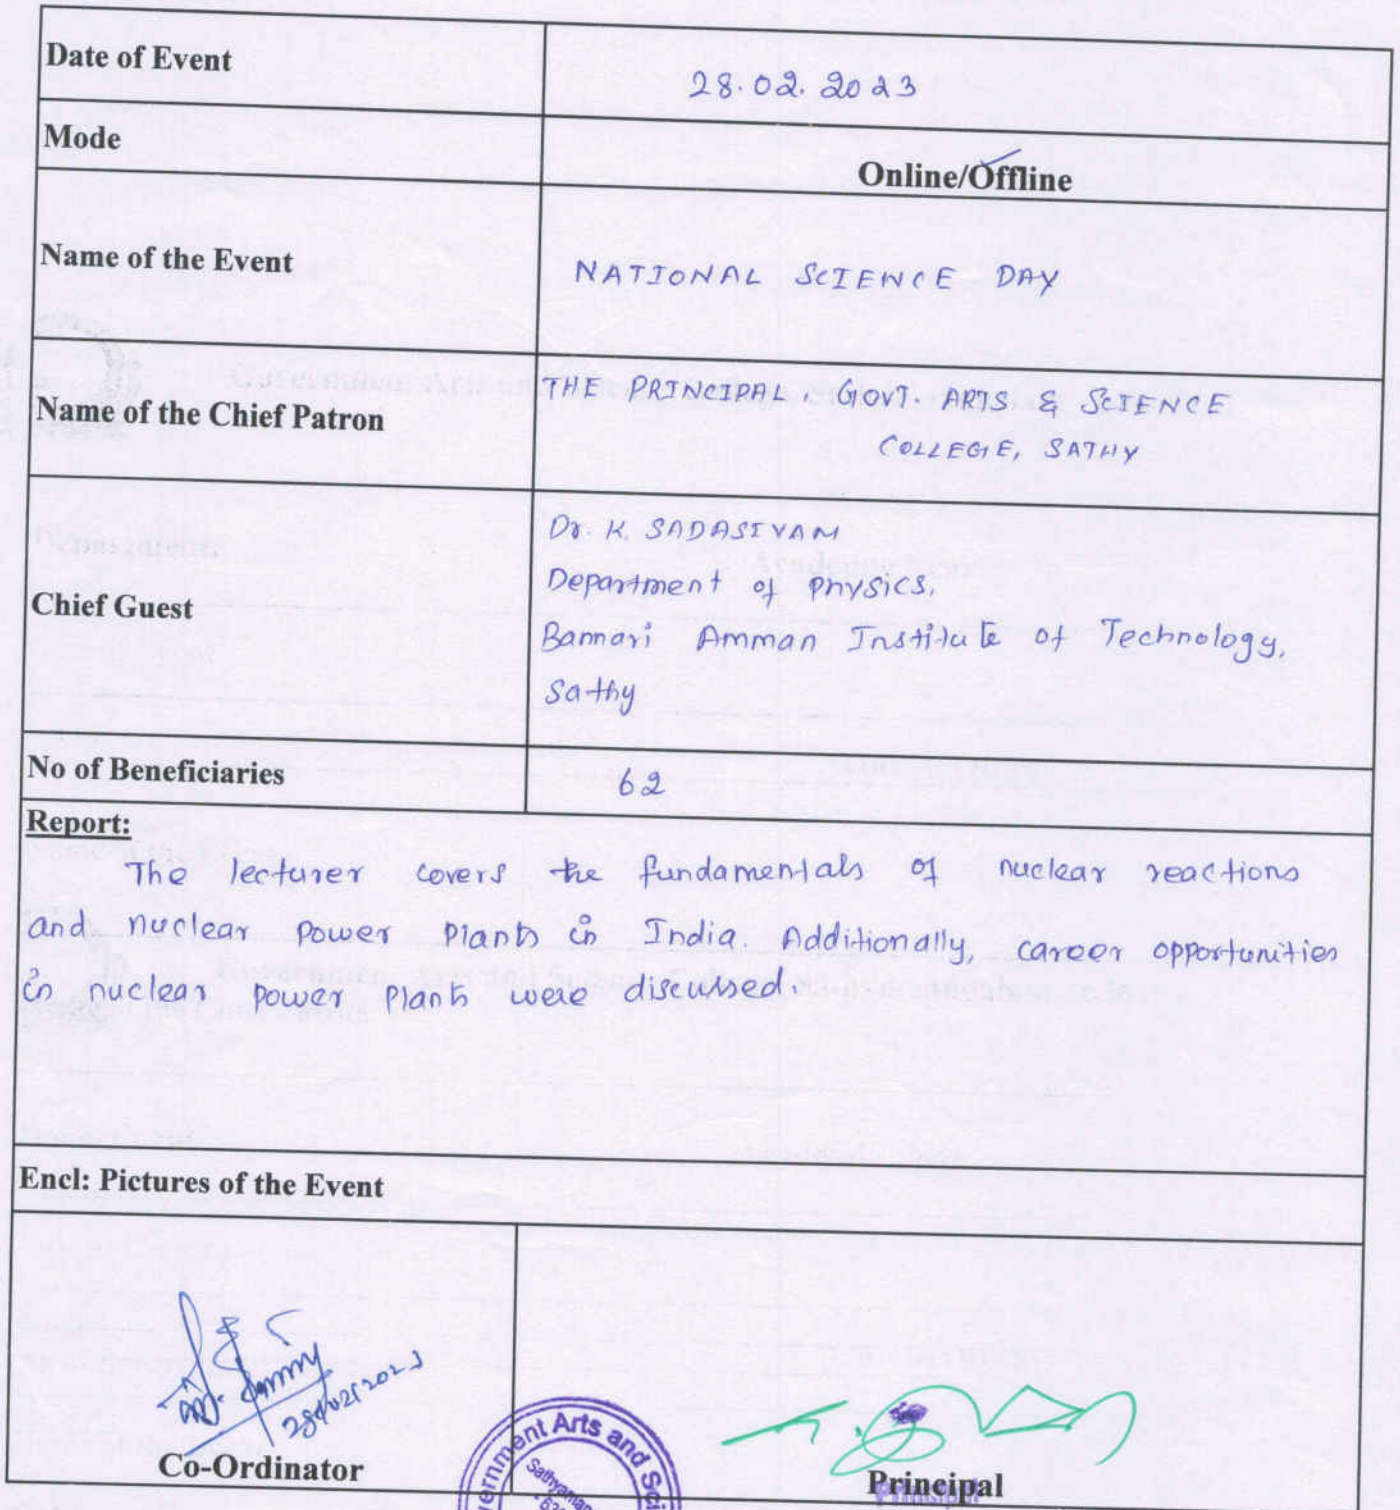 Date of Event
28.02.2023
Mode
Online/Offline
Name of the Event
NATIONAL SCIENCE DAY
Name of the Chief Patron
THE PRINCIPAL, GOVT. ARTS & SCIENCE
COLLEGE, SATHY
Chief Guest
Dr. K. SADASIVAM
Department of Physics,
Bannari Amman Institute of Technology,
Sathy
No of Beneficiaries
62
Report:
The lecturer covers the fundamentals of nuclear reactions
and nuclear power plants in India. Additionally, career opportunities
in nuclear power plants were discussed.
Encl: Pictures of the Event
28/02/2023
Co-Ordinator
ernment Arts and Sci
Principal
Principal